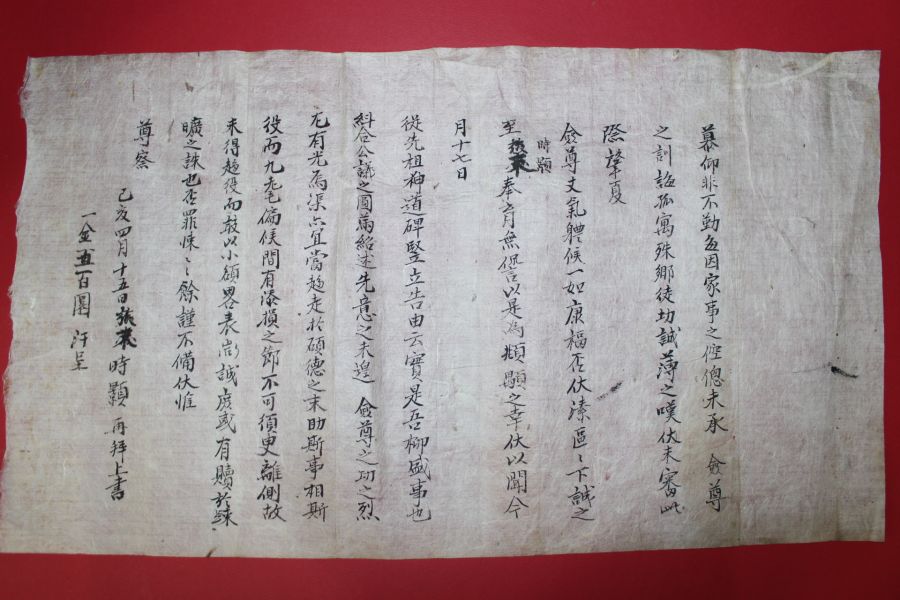 慕仰非不勤每因家事之倥傯未承 僉尊
之訓誨孤寓殊鄉徒切誠薄之嘆伏未審此
際肇夏
僉尊丈氣體候一如康福否伏溱區〻下誠之
至時顯奉 月無 以是為 顯之幸伏以聞今
月十七日
從先祖神道碑竪立告由云實是吾柳盛事也
糾合公議之圓滿紹述先意之未遑 僉尊之功之烈
尤有光焉渠亦宜當趨走於碩德之末助斯事相斯
役而九耋偏候間有添損之節不可須臾離側故
未得趨役而敢以小額畧表微誠慮或有贖於疎
曠之誅也否罪悚〻餘謹不備伏惟
尊察
己亥四月十五日 時顯 再拜上書
一金五百圜 汗呈